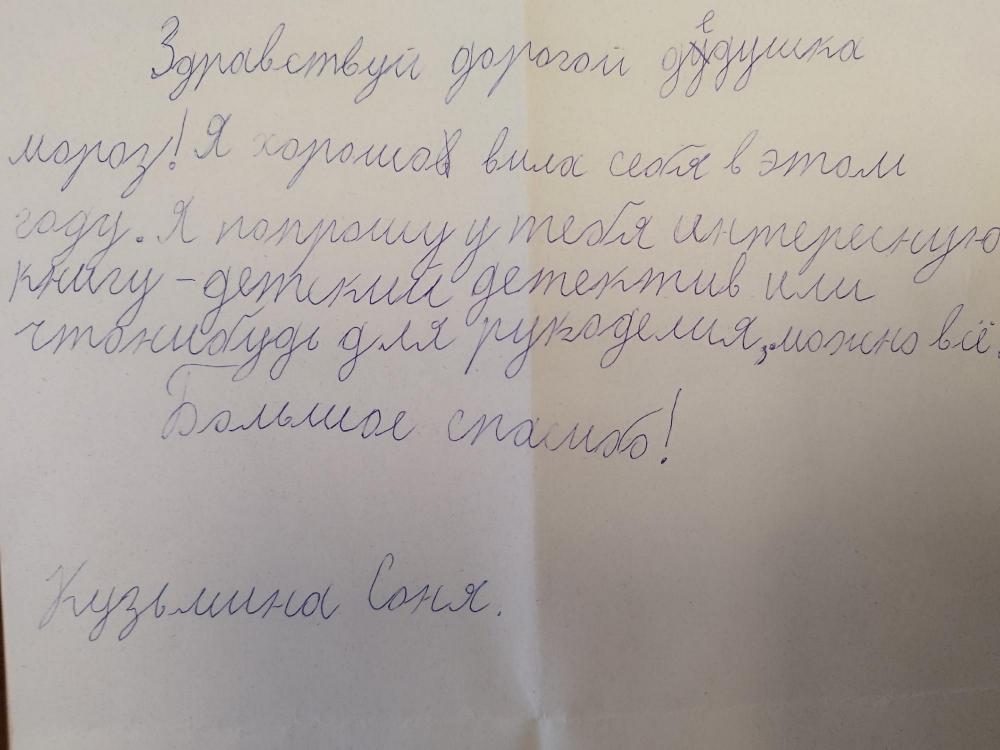 Здравствуй дорогой дедушка
мороз! Я хорошо вила себя в этом
году. Я попрошу у тебя интересную
книгу - детский детектив или
чтонибудь для рукоделия, можно всё.
Большое спасибо!
Кузьмина Соня.